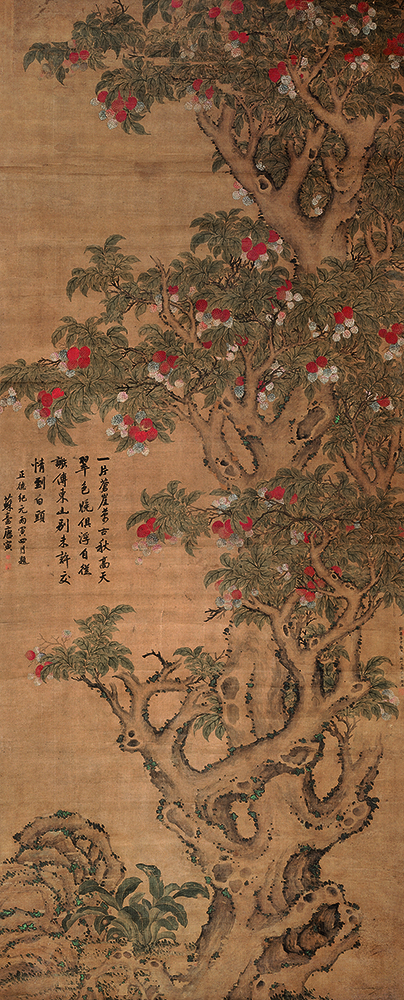 一片蒼崖萬古秋高天
翠色晚俱浮自從
謝傅東山別未許交
情到白頭
正德紀元丙寅四月題
蘇臺唐寅